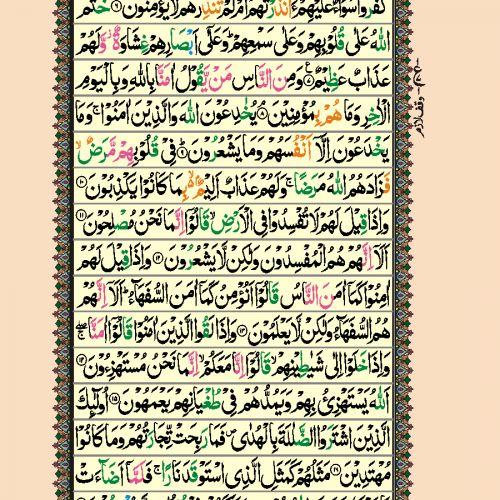 كَفَرُوْا سَوَآءٌ عَلَيْهِمْ ءَاَنْذَرْتَهُمْ اَمْ لَمْ تُنْذِرْهُمْ لَا يُؤْمِنُوْنَ ۶ خَتَمَ
اللّٰهُ عَلٰى قُلُوْبِهِمْ وَعَلٰى سَمْعِهِمْ ؕ وَعَلٰٓى اَبْصَارِهِمْ غِشَاوَةٌ ؗ وَّلَهُمْ
عَذَابٌ عَظِيْمٌ ۷ وَمِنَ النَّاسِ مَنْ يَّقُوْلُ اٰمَنَّا بِاللّٰهِ وَبِالْيَوْمِ
الْاٰخِرِ وَمَا هُمْ بِمُؤْمِنِيْنَ ۸ يُخٰدِعُوْنَ اللّٰهَ وَالَّذِيْنَ اٰمَنُوْا ۚ وَمَا
يَخْدَعُوْنَ اِلَّاۤ اَنْفُسَهُمْ وَمَا يَشْعُرُوْنَ ۹ فِيْ قُلُوْبِهِمْ مَّرَضٌ ۙ
فَزَادَهُمُ اللّٰهُ مَرَضًا ۚ وَلَهُمْ عَذَابٌ اَلِيْمٌۢ ۙ بِمَا كَانُوْا يَكْذِبُوْنَ ۱۰
وَاِذَا قِيْلَ لَهُمْ لَا تُفْسِدُوْا فِي الْاَرْضِ ۙ قَالُوْۤا اِنَّمَا نَحْنُ مُصْلِحُوْنَ ۱۱
اَلَاۤ اِنَّهُمْ هُمُ الْمُفْسِدُوْنَ وَلٰكِنْ لَّا يَشْعُرُوْنَ ۱۲ وَاِذَا قِيْلَ لَهُمْ
اٰمِنُوْا كَمَاۤ اٰمَنَ النَّاسُ قَالُوْۤا اَنُؤْمِنُ كَمَاۤ اٰمَنَ السُّفَهَآءُ ؕ اَلَاۤ اِنَّهُمْ
هُمُ السُّفَهَآءُ وَلٰكِنْ لَّا يَعْلَمُوْنَ ۱۳ وَاِذَا لَقُوا الَّذِيْنَ اٰمَنُوْا قَالُوْۤا اٰمَنَّا
وَاِذَا خَلَوْا اِلٰى شَيٰطِيْنِهِمْ ۙ قَالُوْۤا اِنَّا مَعَكُمْ ۙ اِنَّمَا نَحْنُ مُسْتَهْزِءُوْنَ ۱۴
اَللّٰهُ يَسْتَهْزِئُ بِهِمْ وَيَمُدُّهُمْ فِيْ طُغْيَانِهِمْ يَعْمَهُوْنَ ۱۵ اُولٰٓئِكَ
الَّذِيْنَ اشْتَرَوُا الضَّلٰلَةَ بِالْهُدٰى ۪ فَمَا رَبِحَتْ تِّجَارَتُهُمْ وَمَا كَانُوْا
مُهْتَدِيْنَ ۱۶ مَثَلُهُمْ كَمَثَلِ الَّذِي اسْتَوْقَدَ نَارًا ۚ فَلَمَّاۤ اَضَآءَتْ